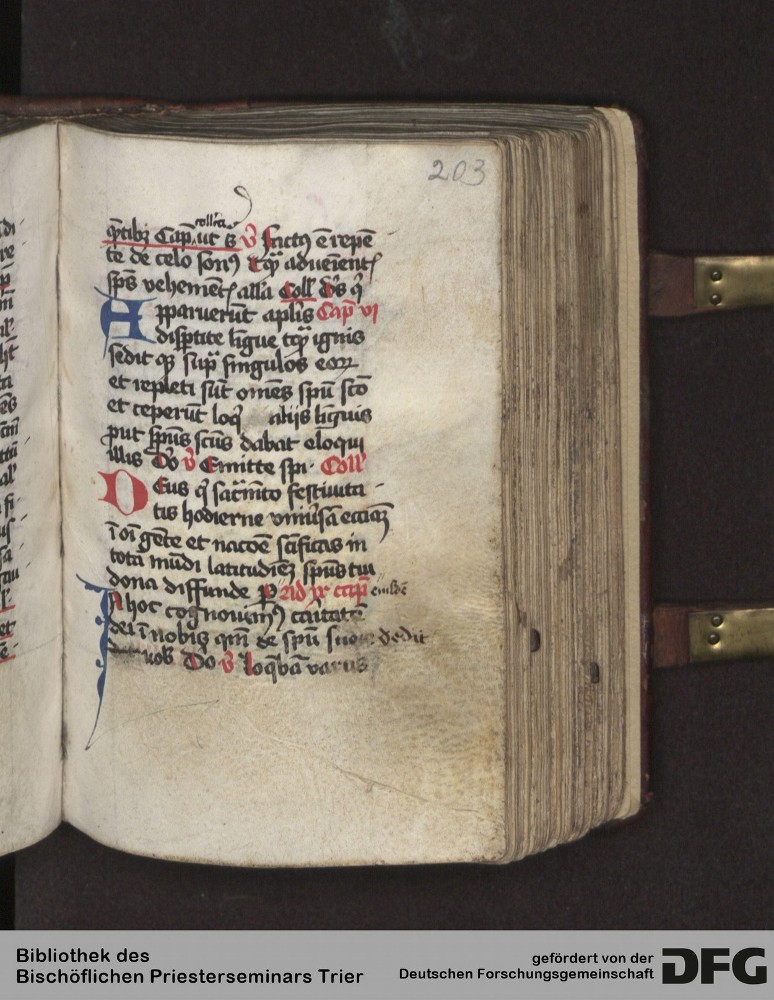 203
collecta
qntibȝ Cap. ut sͣ v̄ Factꝰ ē repē
te de celo sonꝰ tqͣ̄ adueniēntꝭ
sps vehemētꝭ alla Coll Ds q
Apparuerūt aplis Cap vi
dispertite ligue tqͣ̄ ignis
sedit qꝫ supͣ singulos eoꝝ
et repleti sūt om̄es spū sc̄o
et ceperūt loq̄ alijs liguis
put spūs sc̄us dabat eloqui
illis Do v̄ Emitte spi Coll
Deus q̄ sacͣm̄to festiuita
tis hodierne vniūsā eccīaꝫ
ī oī gēte et nacōe sc̄ificas in
totā mūdi latitudīeꝫ spūs tui
dona diffunde ꝑ Ad ix cap eiusdē
In hoc cognouimꝰ caͬitatē
dei ī nobis qm̄ de spū suo dedit
nob Do v̄ loq̄bāt varijs
Bibliothek des
Bischöflichen Priesterseminars Trier
gefördert von der
Deutschen Forschungsgemeinschaft
DFG